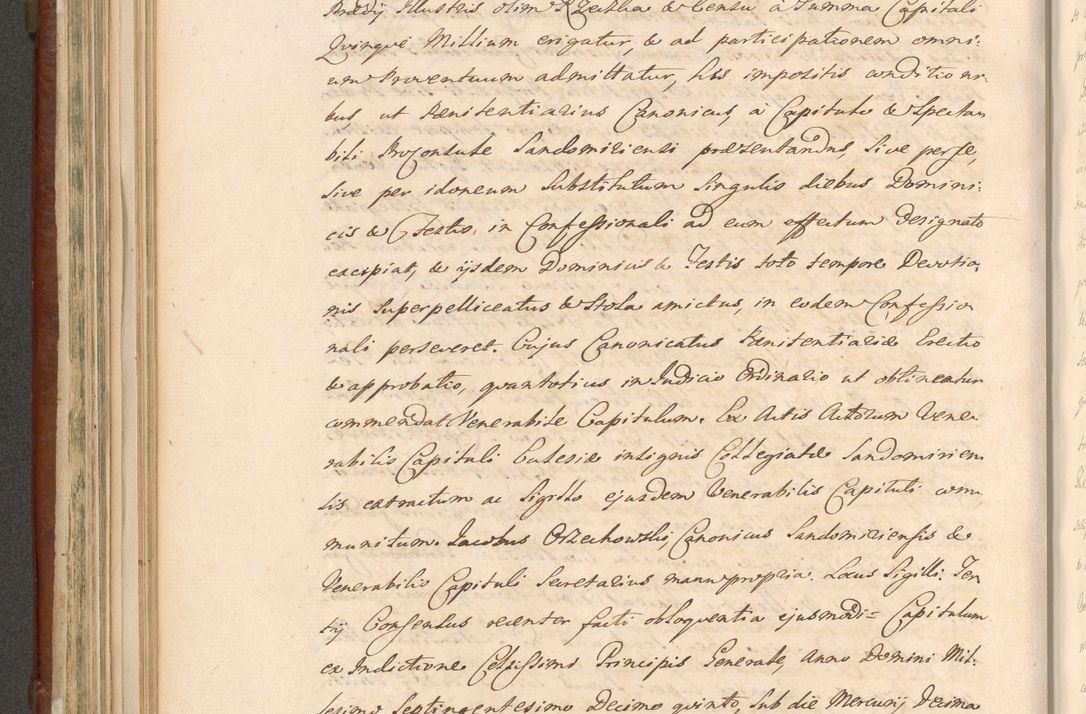 Prædij Illustris olim Rzeczka & Censu à Summa Capitali
Quinque Millium erigatur, & ad participationem omni:
um Proventuum admittatur, his impositis conditioni
bus, ut Pænitentiarius Canonicus, à Capitulo & Spectan
bili ProConsule Sandomiriensi præzentandus, Sive per se,
Sive per idoneum Substitutum Singulis diebus Domini:
cis & Festis, in Confessionali ad eum effectum designato
excipiat, & ijsdem Dominicis & Festis toto tempore Devotio
nis Superpelliceatus & Stola amictus, in eodem Confessio
nali perseveret. Cujus Canonicatus Pænitentiariæ Erectio
& approbatio, quantotius in Judicio Ordinario ut obtineatur
commendat Venerabile Capitulum. Ex Actis Actorum Vene
rabilis Capituli Ecclesiæ insignis Collegiatæ Sandomirien
sis extractum ac Sigillo ejusdem Venerabilis Capituli com
munitum. Jacobus Orzechowski, Canonicus Sandomiriensis &
Venerabilis Capituli Secretarius manu propria. Locus Sigilli. Ter
tij Consensus recenter facti obloquentia ejusmodi= Capitulum
ex Indictione Celsissimi Principis Generale, Anno Domini Mil:
lesimo Septingentesimo Decimo quinto, Sub die Mercurij Decima